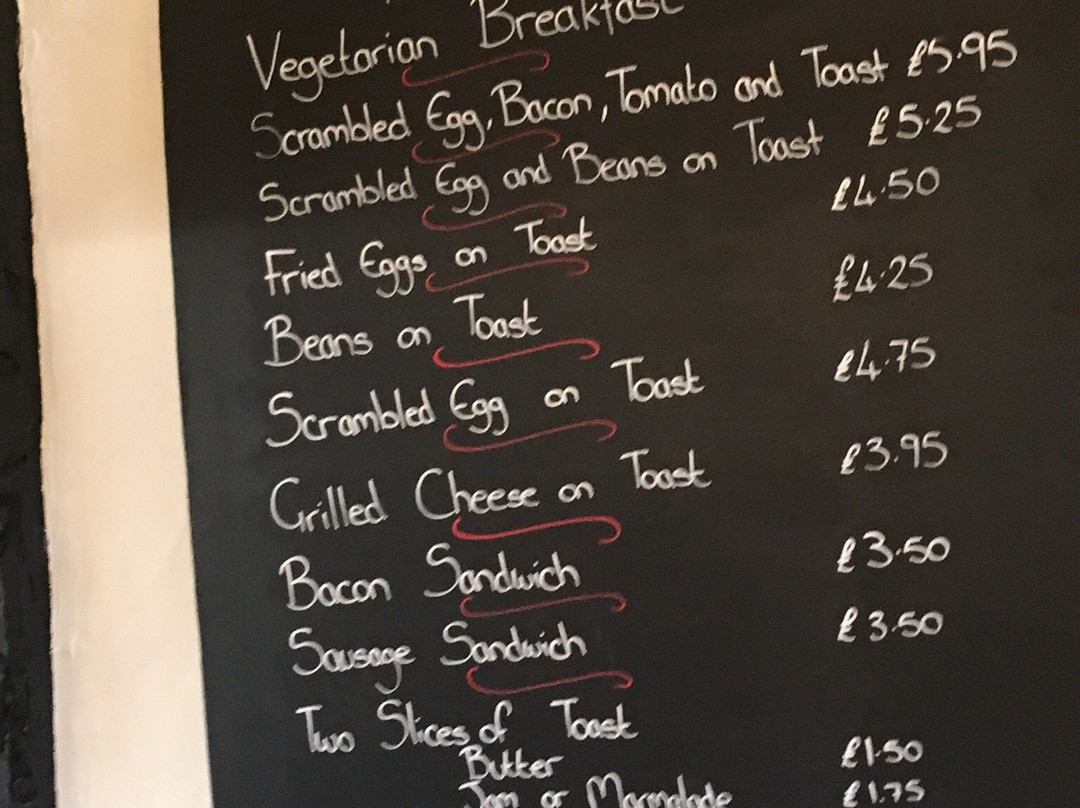 Vegetarian Breakfast
Scrambled Egg, Bacon, Tomato and Toast £5.95
Scrambled Egg and Beans on Toast £5.25
Fried Eggs on Toast £4.50
Beans on Toast £4.25
Scrambled Egg on Toast £4.75
Grilled Cheese on Toast £3.95
Bacon Sandwich £3.50
Sausage Sandwich £3.50
Two Slices of Toast
Butter £1.50
Jam or Marmalade £1.75